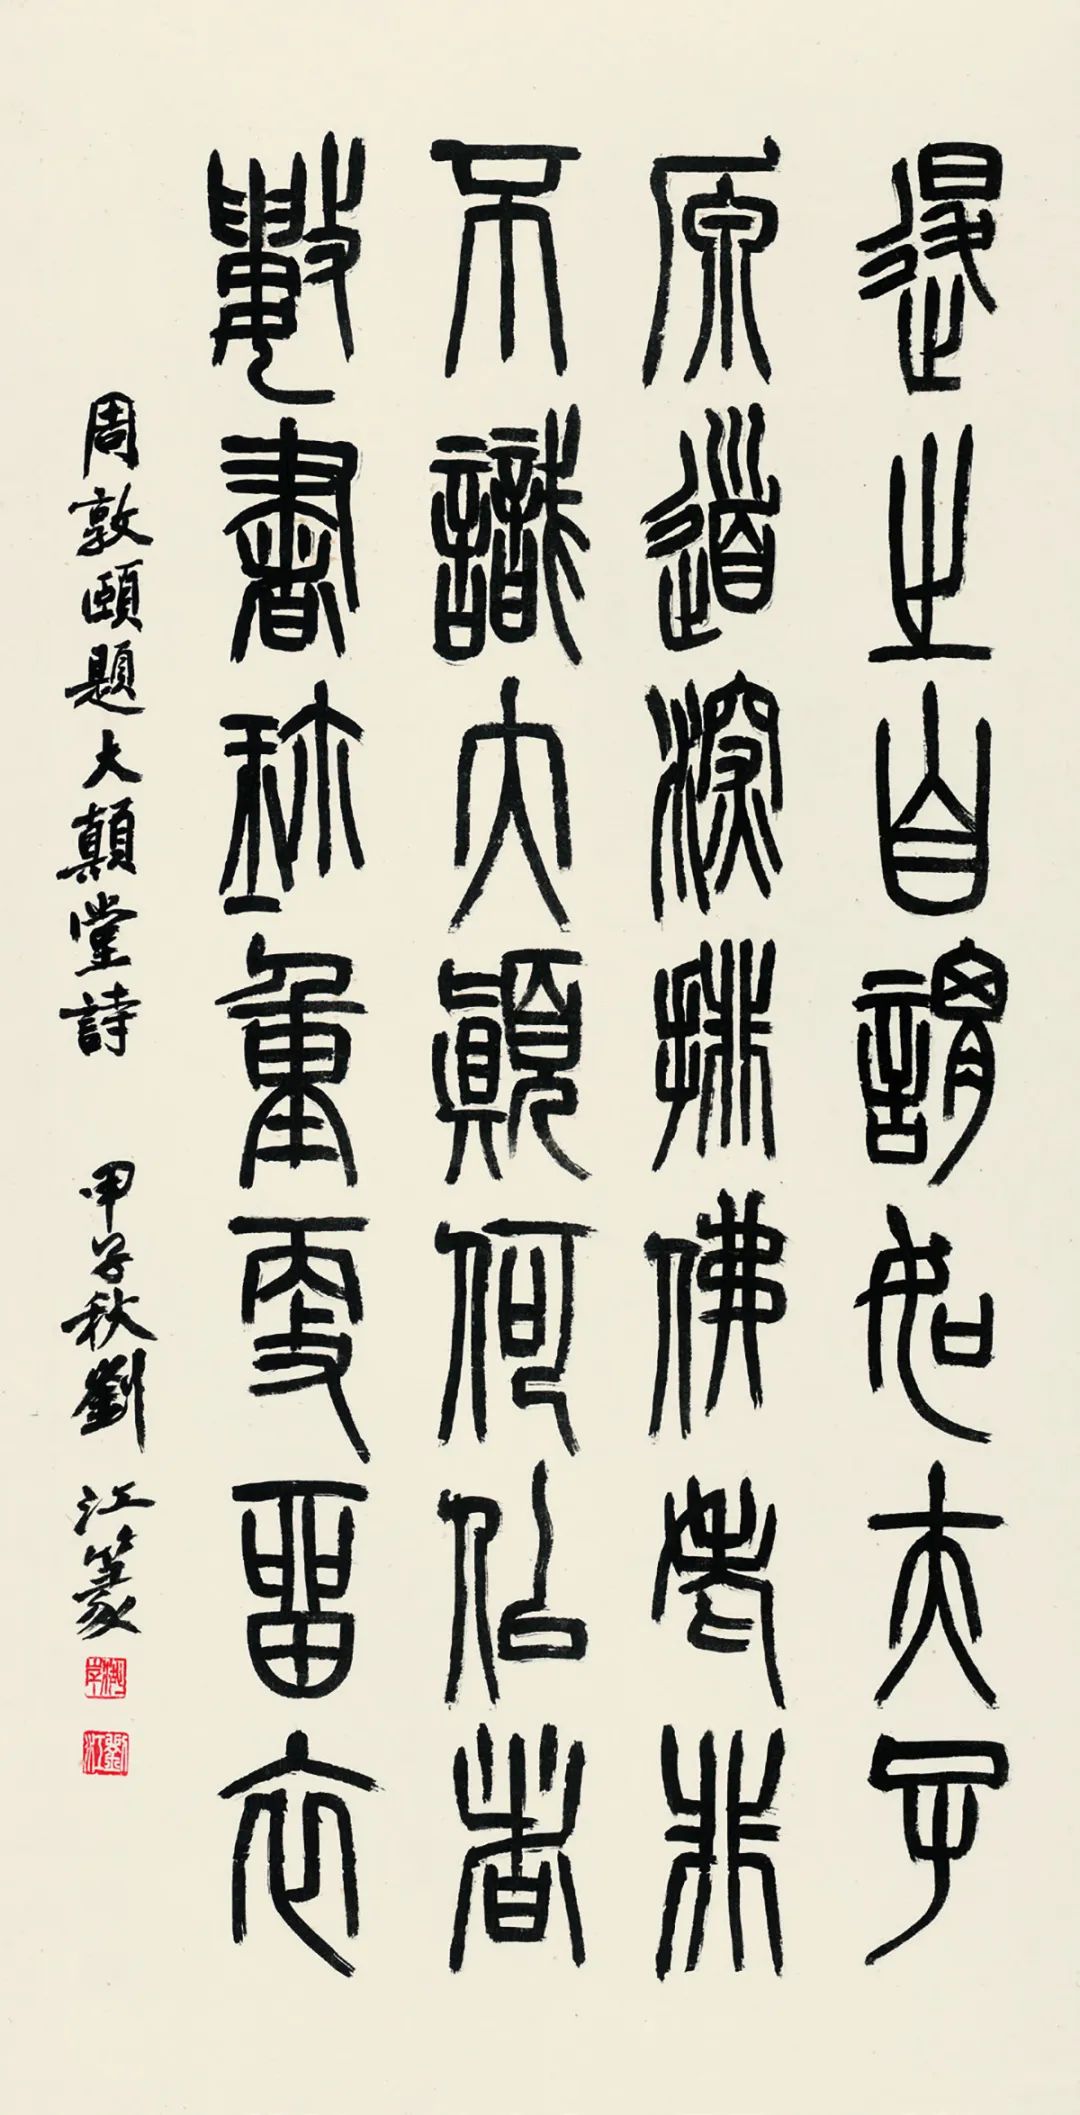 退之自謂如夫子
原道深排佛老非
不識大顛何佀者
數書珎重更留衣
周敦頤題大顛堂詩 甲子秋劉江篆
劉江